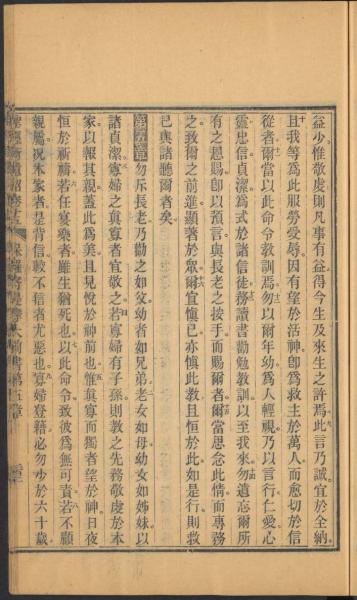 益少惟敬虔則凡事有益得今生及來生之許焉此言乃誠宜於全納
且我等爲此服勞受辱因有望於活神卽爲救主於萬人而愈切於信
從者爾當以此命令教訓焉勿以爾年幼爲人輕視乃以言行仁愛心
靈忠信貞潔爲式於諸信徒務讀書勸勉教訓以至我來勿遺忘爾所
有之恩賜卽以預言與長老之按手而賜爾者爾當思念此情而專務
之致爾之前進顯著於眾爾宜慎己亦慎此教且恒於此如是行則救
己與諸聽爾者矣
第五章勿斥長老乃勸之如父幼者如兄弟老女如母幼女如姊妹以
諸貞潔寡婦之眞寡者宜敬之若寡婦有子孫則教之先務敬虔於本
家以報其親蓋此爲美且見悅於神前也惟眞寡而獨者望於神日夜
恒於祈禱若任宴樂者雖生猶死也以此命令致彼爲無可責若不顧
親屬況本家者是背信較不信者尤惡也寡婦登籍必勿少於六十歲
前書第五章